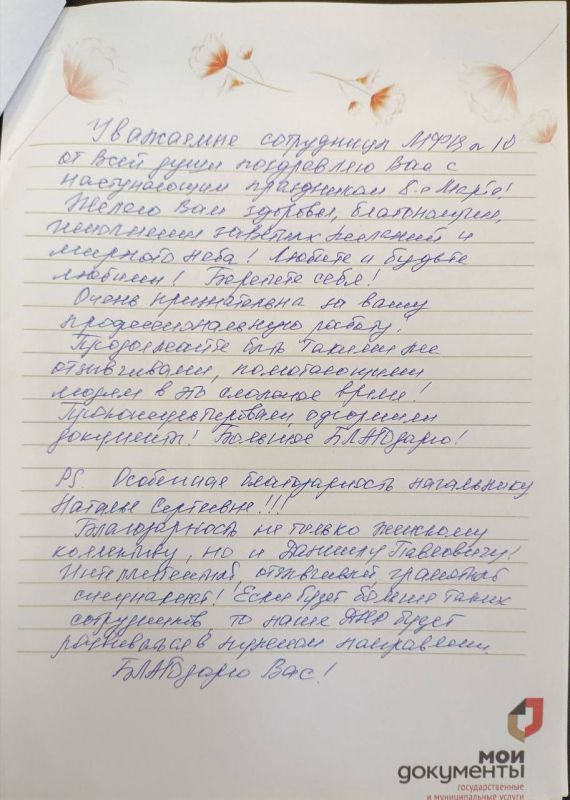 Уважаемые сотрудники МФЦ № 10
от всей души поздравляю Вас с
наступающим праздником 8-е Марта!
Желаю Вам здоровья, благополучия,
исполнения заветных желаний и
мирного неба! Любите и будьте
любимы! Берегите себя!
Очень признательна за вашу
профессиональную работу!
Продолжайте быть такими же
отзывчивыми, помогающими
людям в это сложное время!
Проконсультировали, оформили
документы! Большое БЛАГОдарю!
PS. Особенная благодарность начальнику
Наталье Сергеевне!!!
Благодарность не только женскому
коллективу, но и Даниилу Павловичу!
Интеллигентный, отзывчивый, грамотный
специалист! Если будет больше таких
сотрудников, то наше ДНР будет
развиваться в нужном направлении.
БЛАГОдарю Вас!
МОИ
ДОКУМЕНТЫ
государственные
и муниципальные услуги